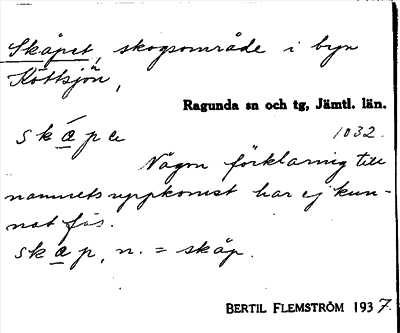 Skåpet, skogsområde i byn
Köttsjön,
Ragunda sn och tg, Jämtl. län.
skàpe 1032.
Någon förklaring till
namnets uppkomst har ej kun-
nat fås.
skap, n. = skåp.
BERTIL FLEMSTRÖM 1937.